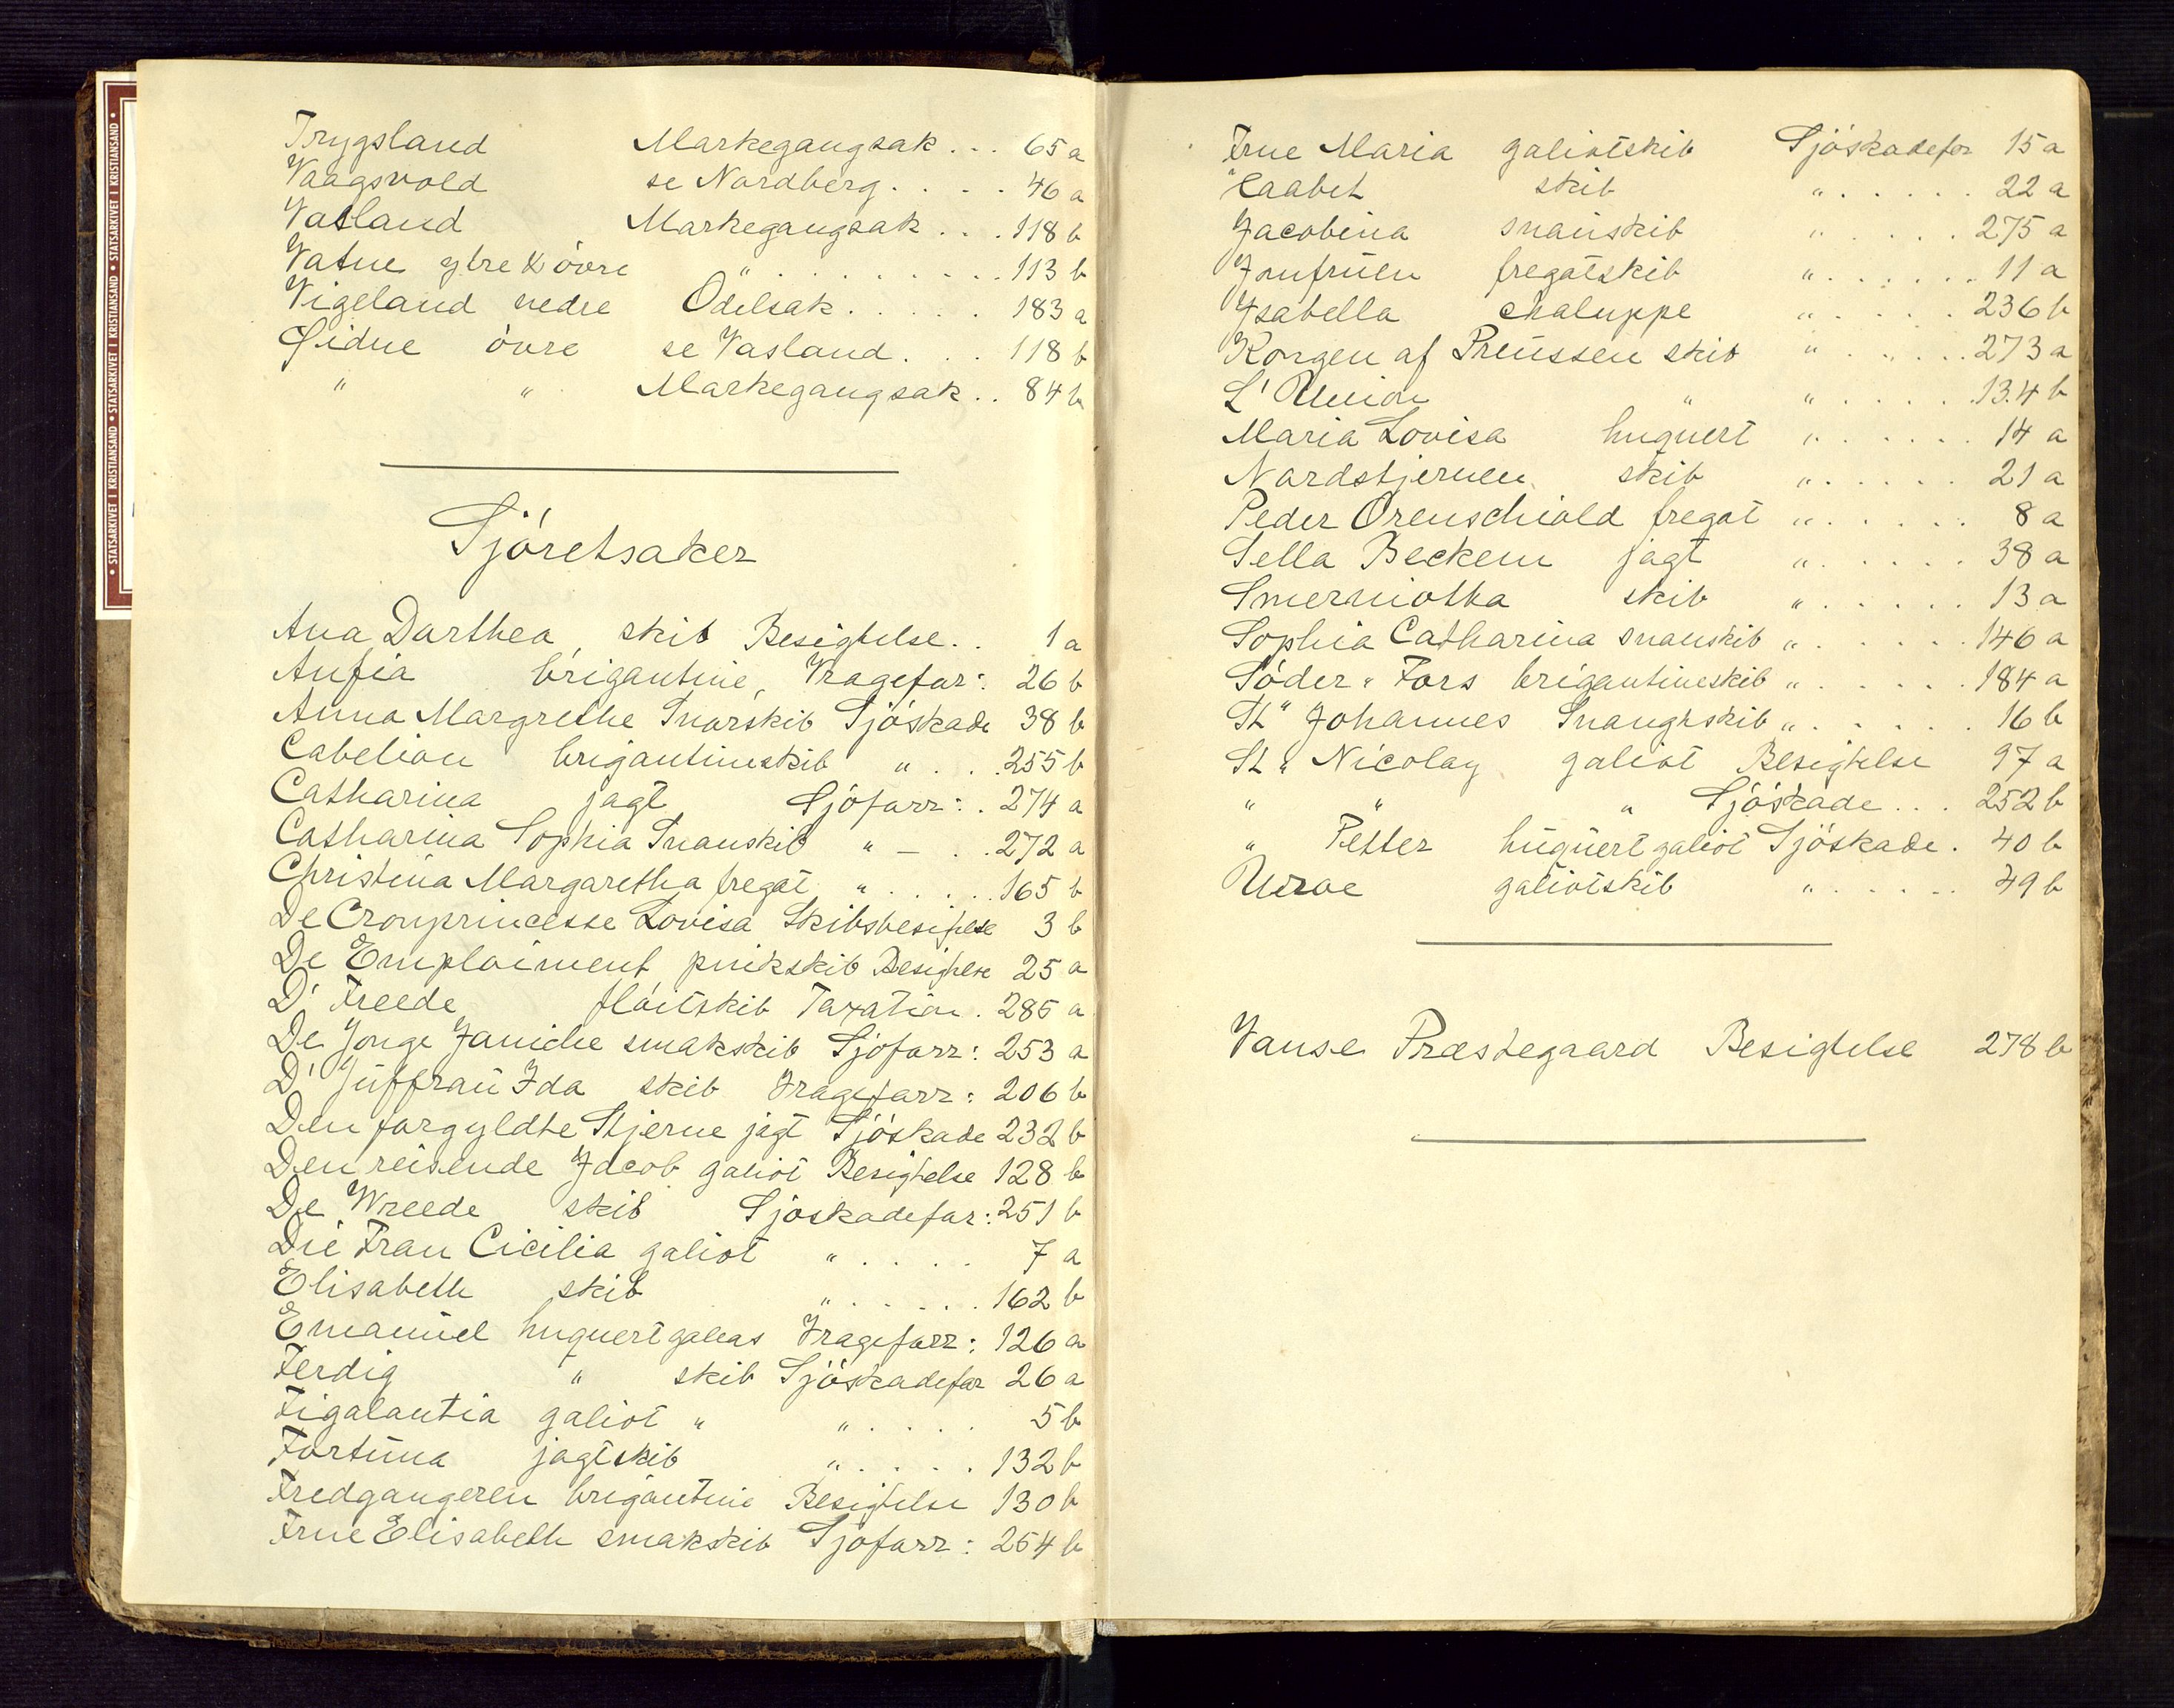 • STATSARKIVET I KRISTIANSAND • STATSARKIVET I KRISTIANSAND • STATSARKIVET I KRISTIANSAND •
Trygsland Markegangsak... 65 a
Vaagsvold se Nordberg.... 46 a
Vatland Markegangsak... 118 b
Vatne ytre & övre " .......... 113 b
Vigeland nedre Odelsak..... 183 a
Öidne övre se Vasland... 118 b
" " Markegangsak.. 84 b
Sjöretsaker
Ana Dorthea, skib Besigtelse.. 1 a
Anfia brigantine, Vragefor: 26 b
Anna Margrethe Snorskib Sjöskade 38 b
Cabeliau brigantineskib " ... 255 b
Catharina jagt Sjöfarr:. 274 a
Catharina Sophia Snauskib " — .. 272 a
Christina Margaretha fregat " ..... 165 b
De Cronprincesse Lovisa Skibsbesigtelse 3 b
De Emploiment pinkskib Besigtelse 25 a
D' Freede flöitskib Taxation. 285 a
De Jonge Janiche smakskib Sjöfarr: 253 a
D' Juffrau Ida skib Vragefarr: 206 b
Den forgyldte Stjerne jagt Sjöskade 232 b
Den reisende Jacob galiot Besigtelse 128 b
De Wreede skib Sjöskadefor: 251 b
Die Frau Cicilia galiot " .... 7 a
Elisabeth skib " ...... 162 b
Emanuel huquertgaleas Vragefarr: 126 a
Ferdig " skib Sjöskadefor 26 a
Figalantia galiot " " .... 5 b
Fortuna jagtskib " .... 132 b
Fredgangeren brigantine Besigtelse 130 b
Frue Elisabeth smakskib Sjöfarr: 254 b
Frue Maria galiotskib Sjöskadefor 15 a
Haabet skib " ..... 22 a
Jacobina snauskib " .... 275 a
Jomfruen fregatskib " ...... 11 a
Isabella chaluppe " .... 236 b
Kongen af Preussen skib " ..... 273 a
L' Union " " ..... 134 b
Maria Lovisa huquert " ...... 14 a
Nordstjernen skib " ..... 21 a
Peder Orenschiold fregat " ..... 8 a
Sella Beckem jagt " ..... 38 a
Smerniotka skib " ..... 13 a
Sophia Catharina snauskib " ..... 146 a
Söder " Fors brigantineskib " ..... 184 a
St " Johannes Snaughskib " .... 16 b
St " Nicolay galiot Besigtelse 97 a
" " " Sjöskade... 252 b
" Petter huquertgaliot Sjöskade. 40 b
Uroe galiotskib " ..... 49 b
Vanse Præstegaard Besigtelse 278 b